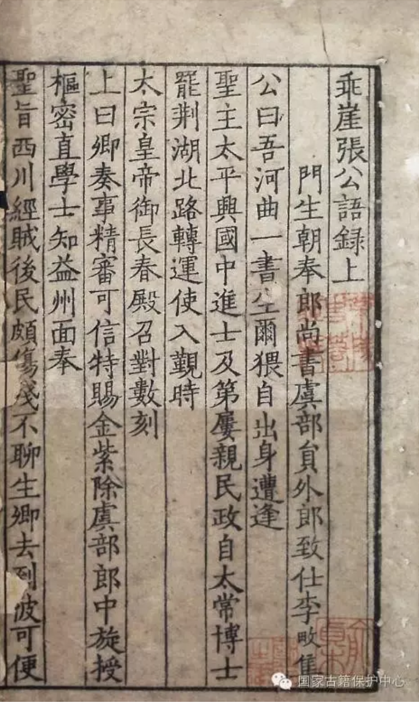 乖崖張公語録上
門生朝奉郎尚書虞部貟外郎致仕李畋集
公曰吾河曲一書生爾猥自出身遭逢
聖主太平興國中進士及第屢親民政自太常博士
罷荆湖北路轉運使入觀時
太宗皇帝御長春殿召對數刻
上曰卿奏事精審可信特賜金紫除虞部郎中旋授
樞密直學士知益州面奉
聖旨西川經賊後民頗傷殘不聊生卿去到彼可便
国家古籍保护中心